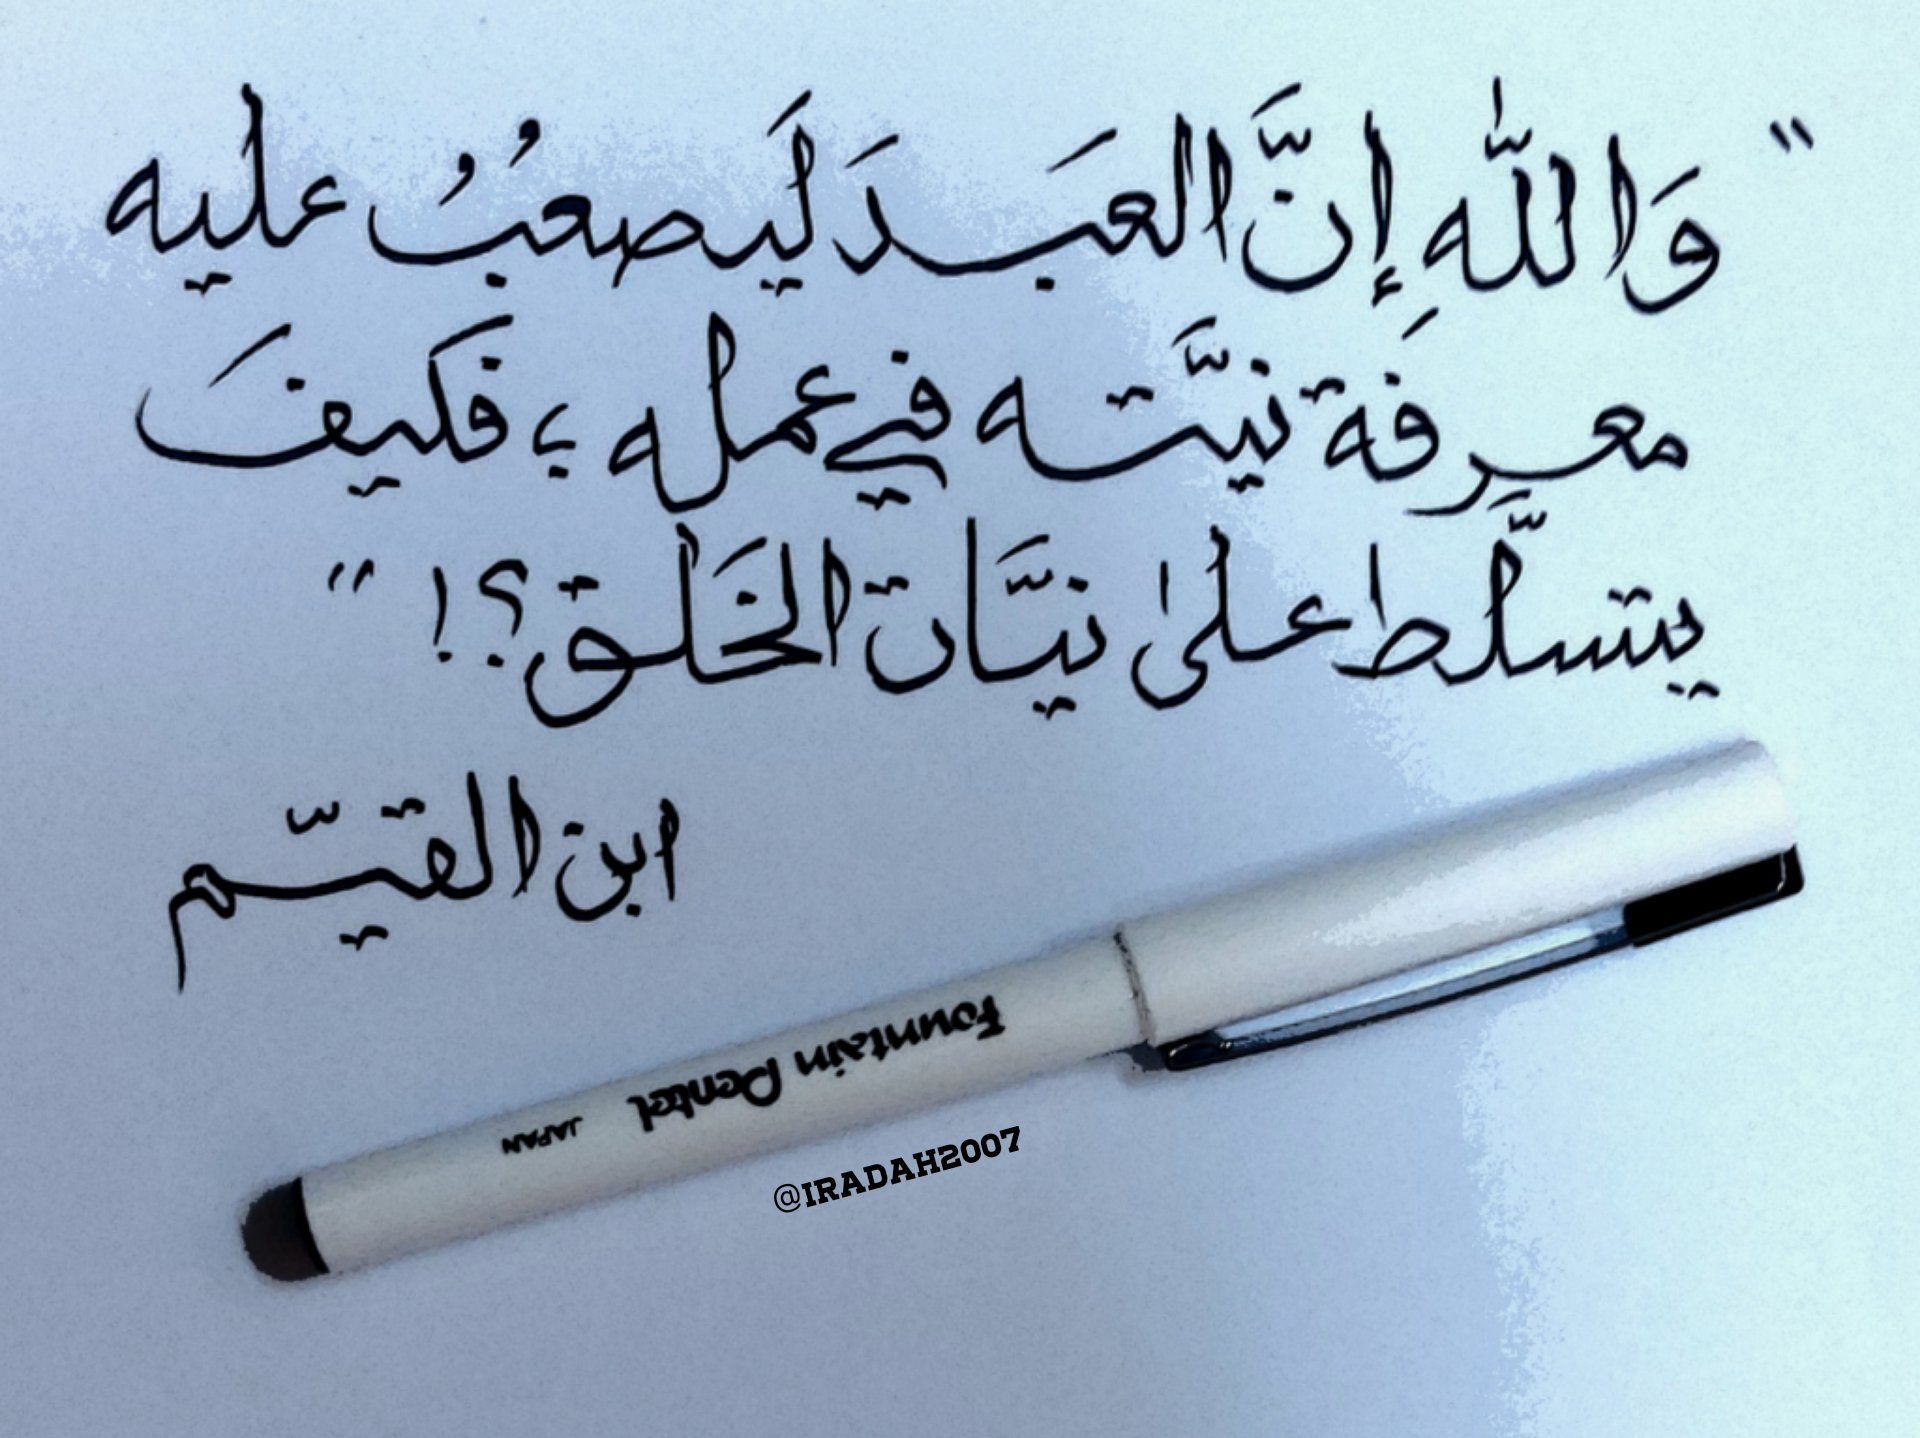 " وَاللّٰهِ إِنَّ العَبدَ لَيصعُبُ عليه
معرِفَة نيَّته في عمله ؛ فكيفَ
يتسلَّط على نيَّات الخَلق ؟! "
ابن القيّم
Fountain Pentel JAPAN
@IRADAH2007